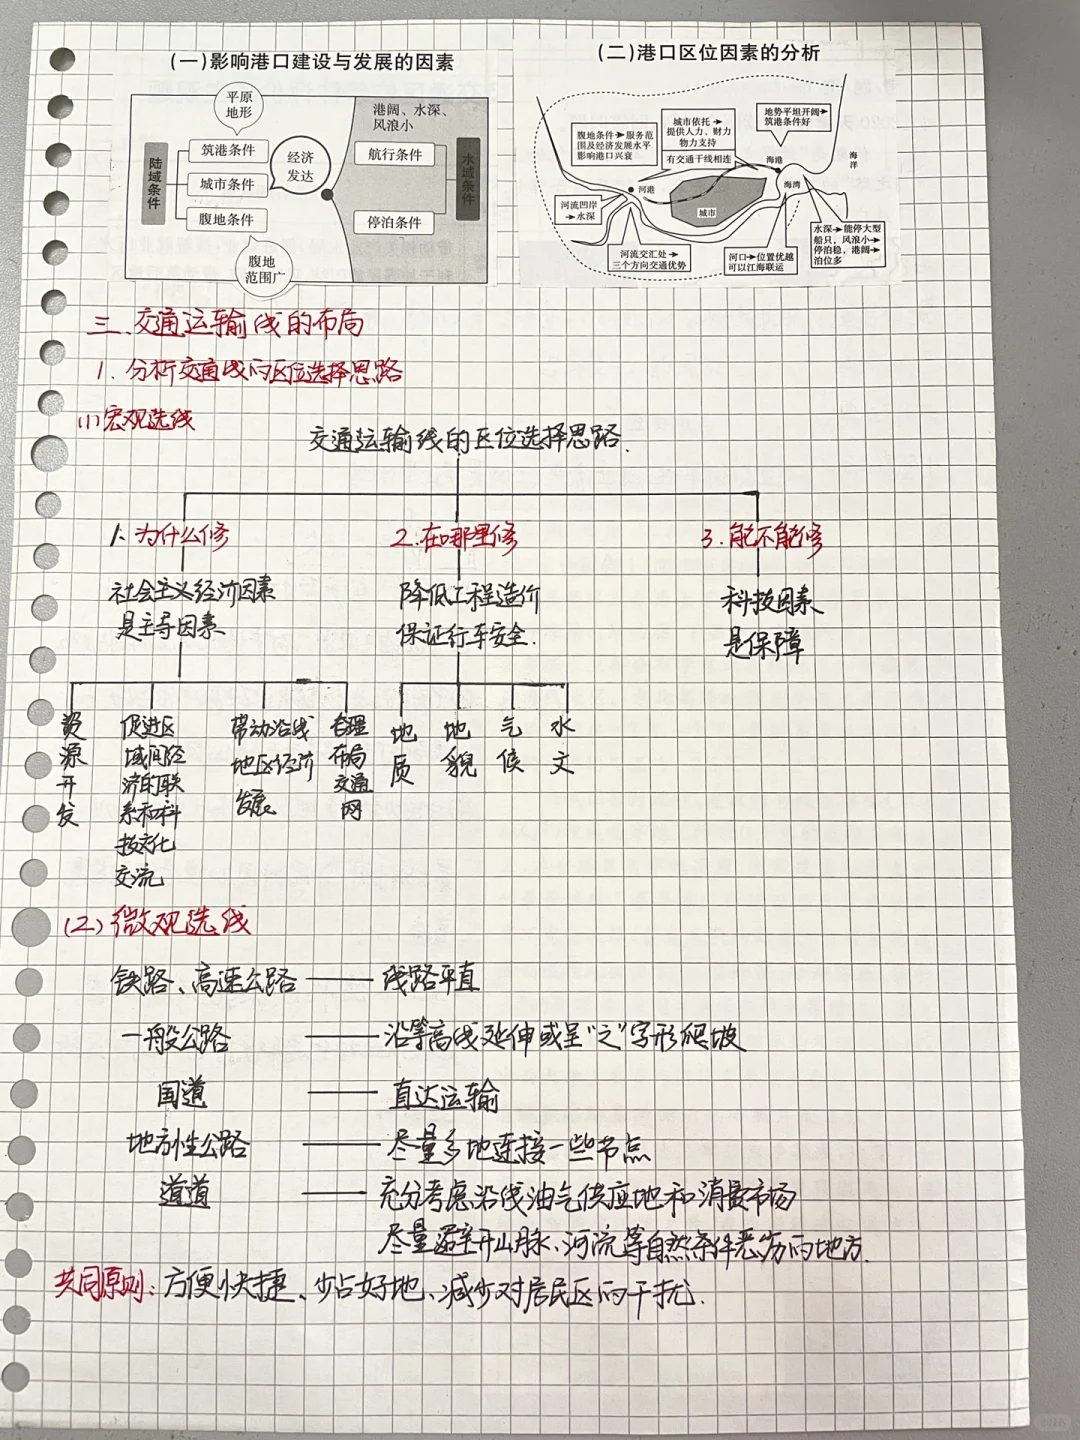 (一)影响港口建设与发展的因素
平原
地形
陆域条件
筑港条件
城市条件
腹地条件
经济
发达
腹地
范围广
港阔、水深、
风浪小
航行条件
停泊条件
水域条件
(二)港口区位因素的分析
腹地条件→服务范
围及经济发展水平
影响港口兴衰
城市依托→
提供人力、财力
物力支持
有交通干线相连
地势平坦开阔→
筑港条件好
海港
海洋
海湾
河港
城市
河流凹岸
→水深
河流交汇处→
三个方向交通优势
河口→位置优越
可以江海联运
水深→能停大型
船只,风浪小→
停泊稳,港阔→
泊位多
三、交通运输线的布局
1. 分析交通线的区位选择思路
(1)宏观选线
交通运输线的区位选择思路.
1. 为什么修
2.在哪里修
3.能不能修
社会主义经济因素
是主导因素
降低工程造价
保证行车安全.
科技因素
是保障
资源开发
促进区
域间经
济的联
系和科
技文化
交流
带动沿线
地区经济
发展
合理
布局
交通
网
地质
地貌
气候
水文
(2)微观选线
铁路、高速公路——线路平直
一般公路——沿等高线延伸或呈“之”字形爬坡
国道——直达运输
地方性公路——尽量多地连接一些节点
道道——充分考虑沿线油气供应地和消费市场
尽量避开山脉、河流等自然条件恶劣的地方.
共同原则:方便快捷、少占好地、减少对居民区的干扰.